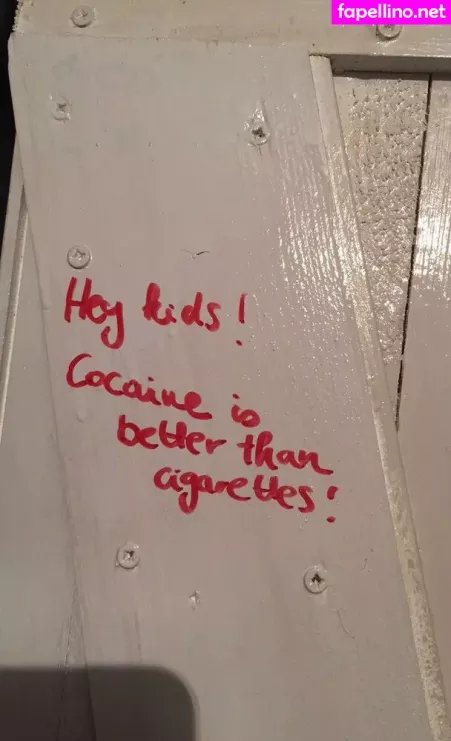 fapellino.net
Hey kids!
Cocaine is
better than
cigarettes!